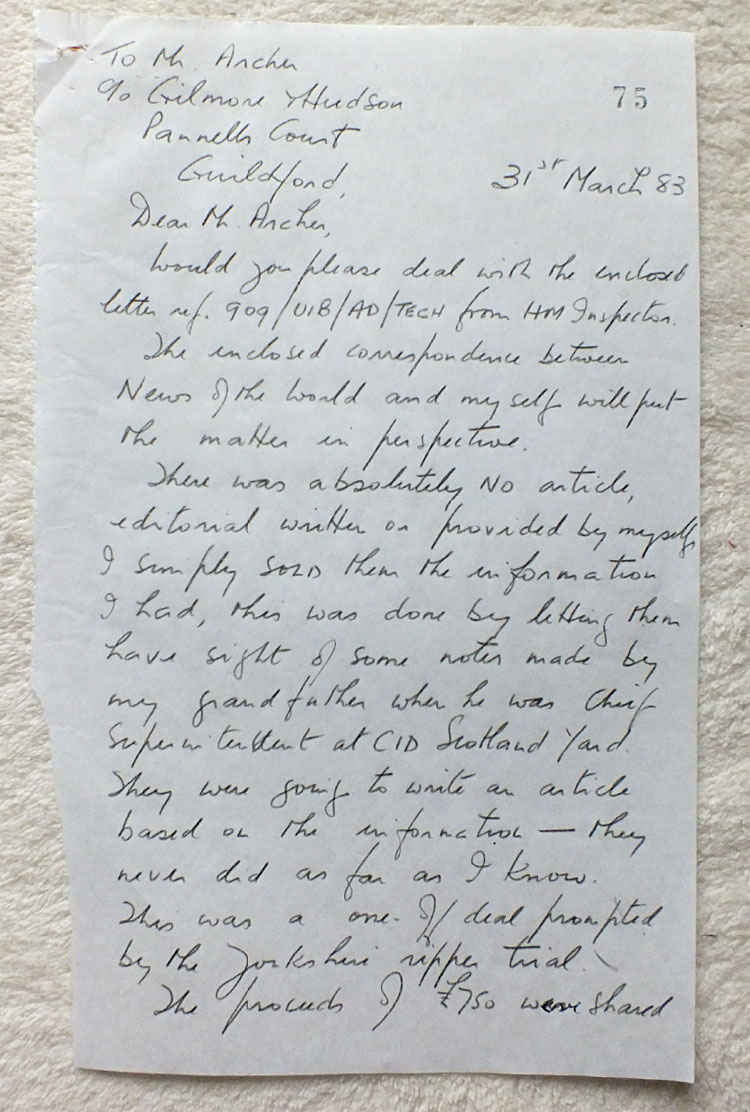 To Mr. Archer
c/o Gilmore & Hudson
75
Pannells Court
Guildford,
31st March 83
Dear Mr. Archer,
Would you please deal with the enclosed
letter ref. 909/UIB/AD/TECH from HM Inspector.
The enclosed correspondence between
News of the World and myself will put
the matter in perspective.
There was absolutely NO article,
editorial written or provided by myself
I simply SOLD them the information
I had, this was done by letting them
have sight of some notes made by
my grandfather when he was Chief
Superintendent at CID Scotland Yard.
They were going to write an article
based on the information — they
never did as far as I know.
This was a one-off deal prompted
by the Yorkshire ripper trial.
The proceeds of £750 were shared